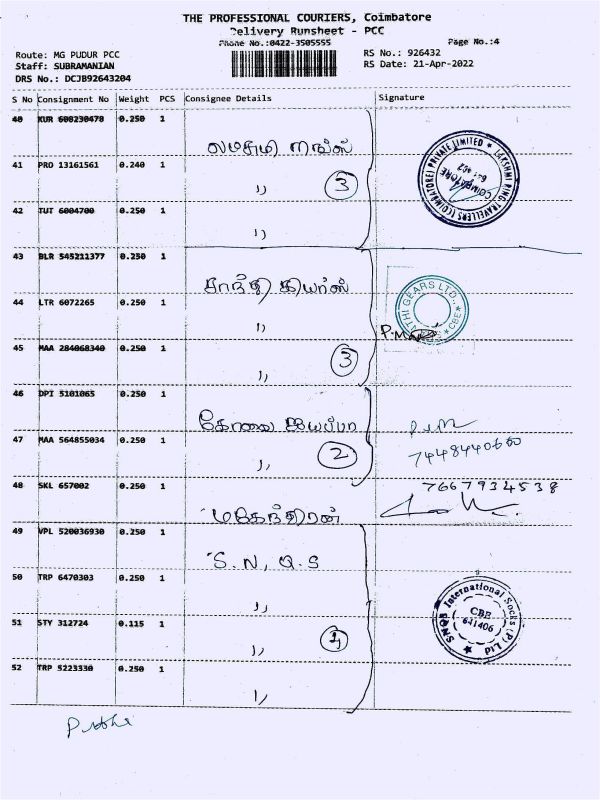 THE PROFESSIONAL COURIERS, Coimbatore
Delivery Runsheet - PCC
Phone No.:0422-3505555
Page No.:4
Route: MG PUDUR PCC
RS No.: 926432
Staff: SUBRAMANIAN
RS Date: 21-Apr-2022
DRS No.: DCJB92643204
S No Consignment No Weight PCS Consignee Details Signature
40 KUR 600230470 0.250 1
லட்சுமி ரிங்ஸ்
LAKSHMI RING TRAVELLERS (COIMBATORE) PRIVATE LIMITED ★
COIMBATORE
641 402
41 PRO 13161561 0.240 1
,, 3
42 TUT 6004700 0.250 1
,,
43 BLR 545211377 0.250 1
சாந்தி கியர்ஸ்
GEARS LTD., ★ CBE ★
44 LTR 6072265 0.250 1
,,
45 MAA 284068340 0.250 1
,, 3
46 DPI 5101065 0.250 1
கோவை ஐயப்பா
47 MAA 564855034 0.250 1
,, 2
48 SKL 657002 0.250 1
7667934538
மகேந்திரன்
49 VPL 520036930 0.250 1
S.N, Q.S
50 TRP 6470303 0.250 1
,,
SNQS International Socks (P) Ltd ★
CBE
641406
51 STY 312724 0.115 1
,, 4
52 TRP 5223330 0.250 1
,,